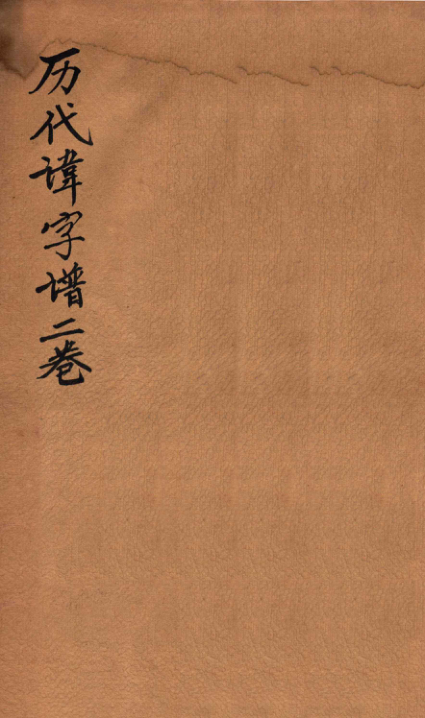 历代讳字谱二卷